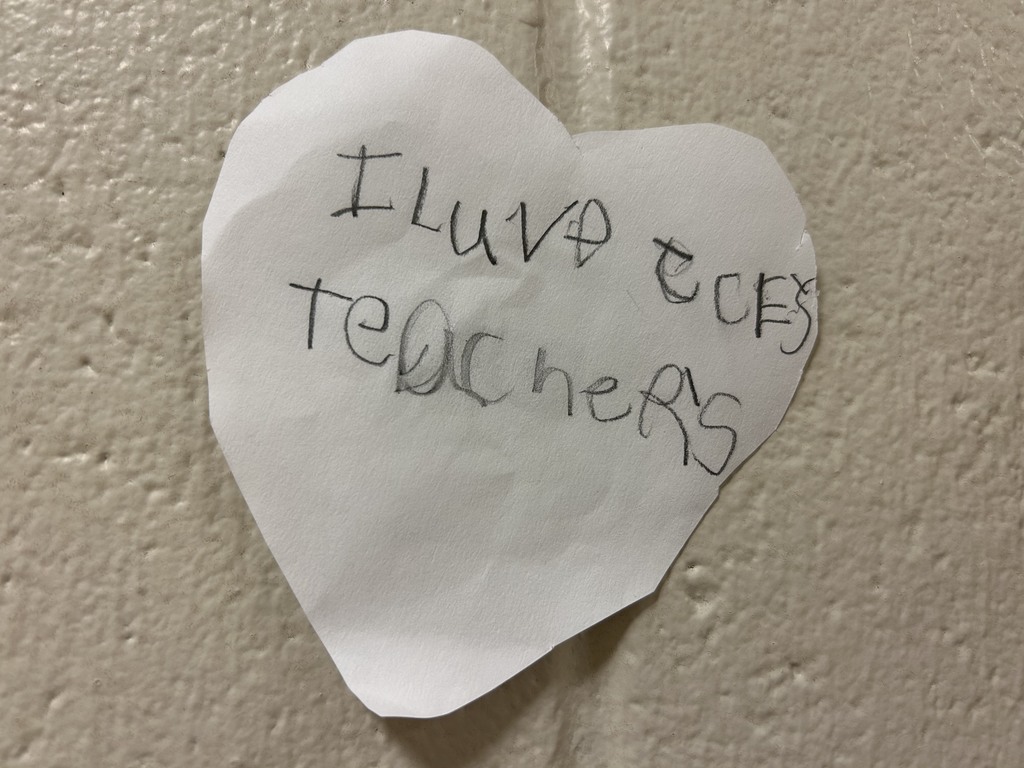 I Luve ECES
TeacheRS